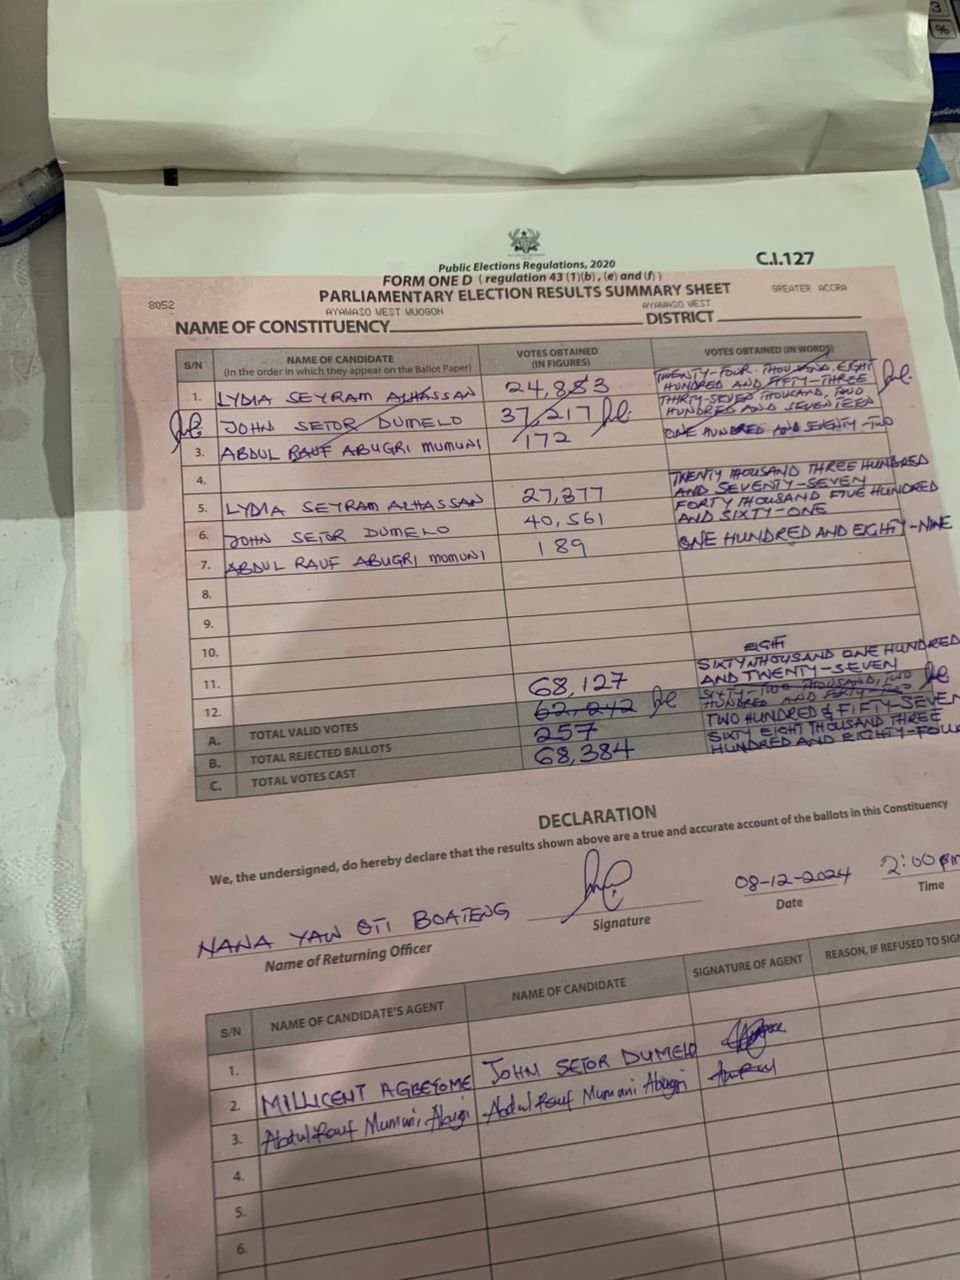 Public Elections Regulations, 2020
C.I.127
FORM ONE D ( regulation 43 (1)(b), (e) and (f) )
PARLIAMENTARY ELECTION RESULTS SUMMARY SHEET
8052
AYAWASO WEST WUOGON
AYAWASO WEST
GREATER ACCRA
NAME OF CONSTITUENCY DISTRICT
S/N NAME OF CANDIDATE (In the order in which they appear on the Ballot Paper) VOTES OBTAINED (IN FIGURES) VOTES OBTAINED (IN WORDS)
1. LYDIA SEYRAM ALHASSAN 24,853 TWENTY-FOUR THOUSAND, EIGHT HUNDRED AND FIFTY-THREE
JOHN SETOR DUMELO 37,217 THIRTY-SEVEN THOUSAND, TWO HUNDRED AND SEVENTEEN
3. ABDUL RAUF ABUGRI MUMUNI 172 ONE HUNDRED AND SEVENTY-TWO
4.
5. LYDIA SEYRAM ALHASSAN 27,377 TWENTY THOUSAND THREE HUNDRED AND SEVENTY-SEVEN
6. JOHN SETOR DUMELO 40,561 FORTY THOUSAND FIVE HUNDRED AND SIXTY-ONE
7. ABDUL RAUF ABUGRI MOMUNI 189 ONE HUNDRED AND EIGHTY-NINE
8.
9.
10.
11.
12.
68,127 SIXTY EIGHT THOUSAND ONE HUNDRED AND TWENTY-SEVEN
A. TOTAL VALID VOTES 62,242 SIXTY-TWO THOUSAND, TWO HUNDRED AND FORTY-TWO
B. TOTAL REJECTED BALLOTS 257 TWO HUNDRED & FIFTY-SEVEN
C. TOTAL VOTES CAST 68,384 SIXTY EIGHT THOUSAND THREE HUNDRED AND EIGHTY-FOU
DECLARATION
We, the undersigned, do hereby declare that the results shown above are a true and accurate account of the ballots in this Constituency
NANA YAW OTI BOATENG 08-12-2024 2:00 pm
Name of Returning Officer Signature Date Time
S/N NAME OF CANDIDATE'S AGENT NAME OF CANDIDATE SIGNATURE OF AGENT REASON, IF REFUSED TO SIGN
1.
2. MILLICENT AGBEYOME JOHN SETOR DUMELO
3. Abdul Rauf Mumuni Abugri Abdul Rauf Mumani Abugri
4.
5.
6.